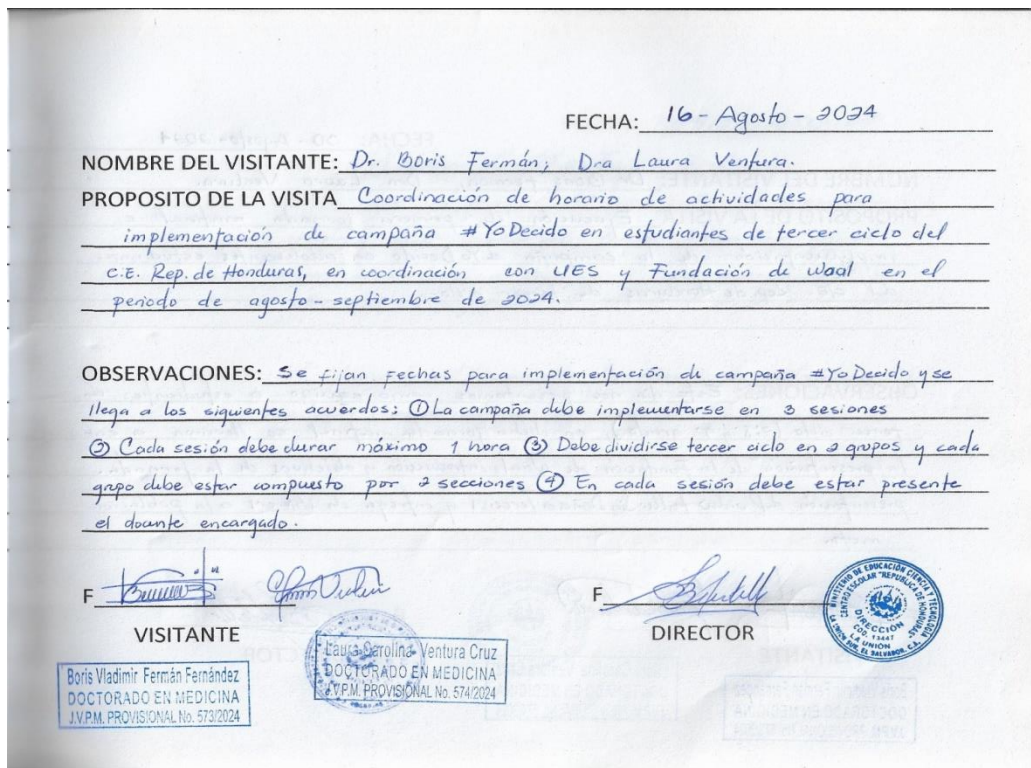 FECHA: 16 - Agosto - 2024
NOMBRE DEL VISITANTE: Dr. Boris Fermán; Dra Laura Ventura.
PROPOSITO DE LA VISITA Coordinación de horario de actividades para
implementación de campaña #YoDecido en estudiantes de tercer ciclo del
C.E. Rep. de Honduras, en coordinación con UES y Fundación de Waal en el
periodo de agosto - septiembre de 2024.
OBSERVACIONES: Se fijan fechas para implementación de campaña #YoDecido y se
llega a los siguientes acuerdos: ① La campaña debe implementarse en 3 sesiones
② Cada sesión debe durar máximo 1 hora ③ Debe dividirse tercer ciclo en 2 grupos y cada
grupo debe estar compuesto por 2 secciones ④ En cada sesión debe estar presente
el docente encargado.
F F
VISITANTE DIRECTOR
Boris Vladimir Fermán Fernández
DOCTORADO EN MEDICINA
J.V.P.M. PROVISIONAL No. 573/2024
Laura Carolina Ventura Cruz
DOCTORADO EN MEDICINA
J.V.P.M. PROVISIONAL No. 574/2024
MINISTERIO DE EDUCACIÓN CIENCIA Y TECNOLOGÍA
CENTRO ESCOLAR "REPUBLICA DE HONDURAS"
DIRECCIÓN
COD. 13447
LA UNIÓN
LA UNIÓN SUR, EL SALVADOR, C.A.